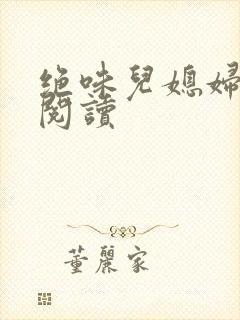 絶味兒媳婦
閱讀
董麗家